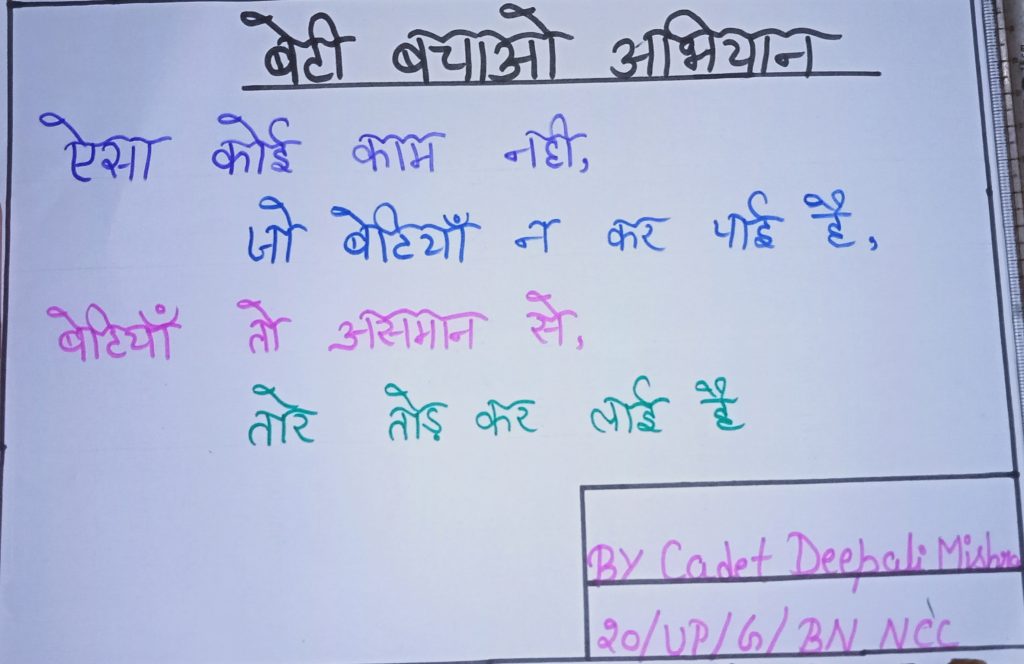 बेटी बचाओ अभियान
ऐसा कोई काम नही,
जो बेटियाँ न कर पाई है,
बेटियाँ तो असमान से,
तोरे तोड़ कर लाई है
BY Cadet Deepali Mishra
20/UP/G/BN NCC